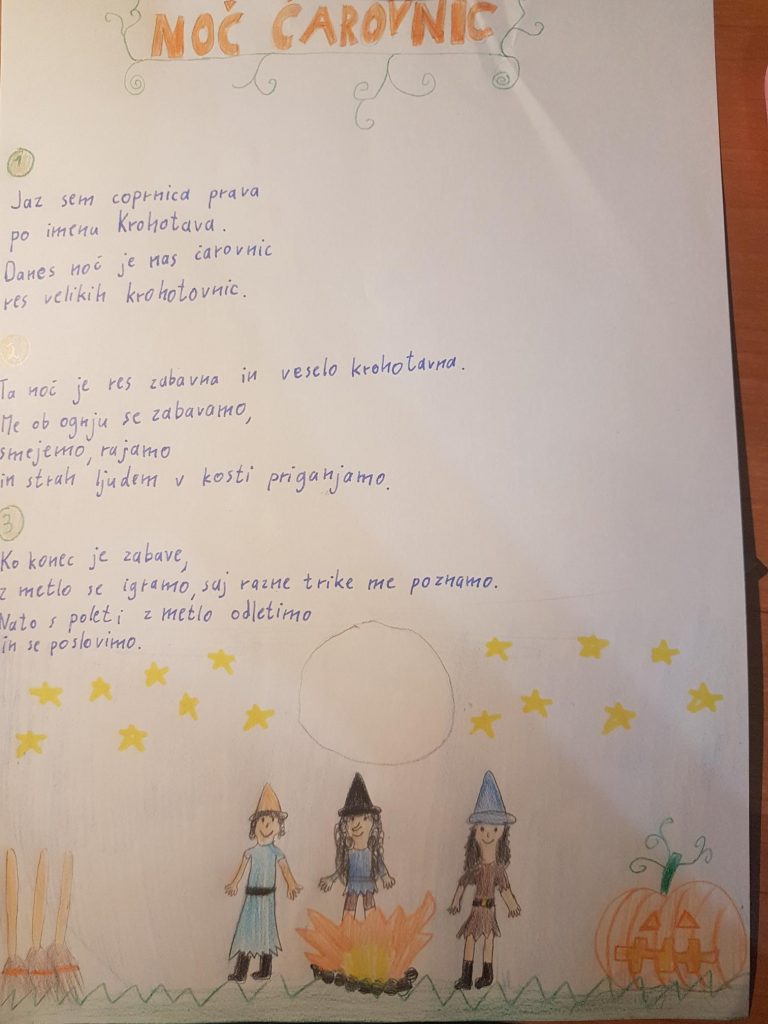 NOČ ČAROVNIC
1
Jaz sem coprnica prava
po imenu Krohotava.
Danes noč je nas čarovnic
res velikih krohotovnic.
2
Ta noč je res zabavna in veselo krohotavna.
Me ob ognju se zabavamo,
smejemo, rajamo
in strah ljudem v kosti priganjamo.
3
Ko konec je zabave,
z metlo se igramo, saj razne trike me poznamo.
Nato s poleti z metlo odletimo
in se poslovimo.